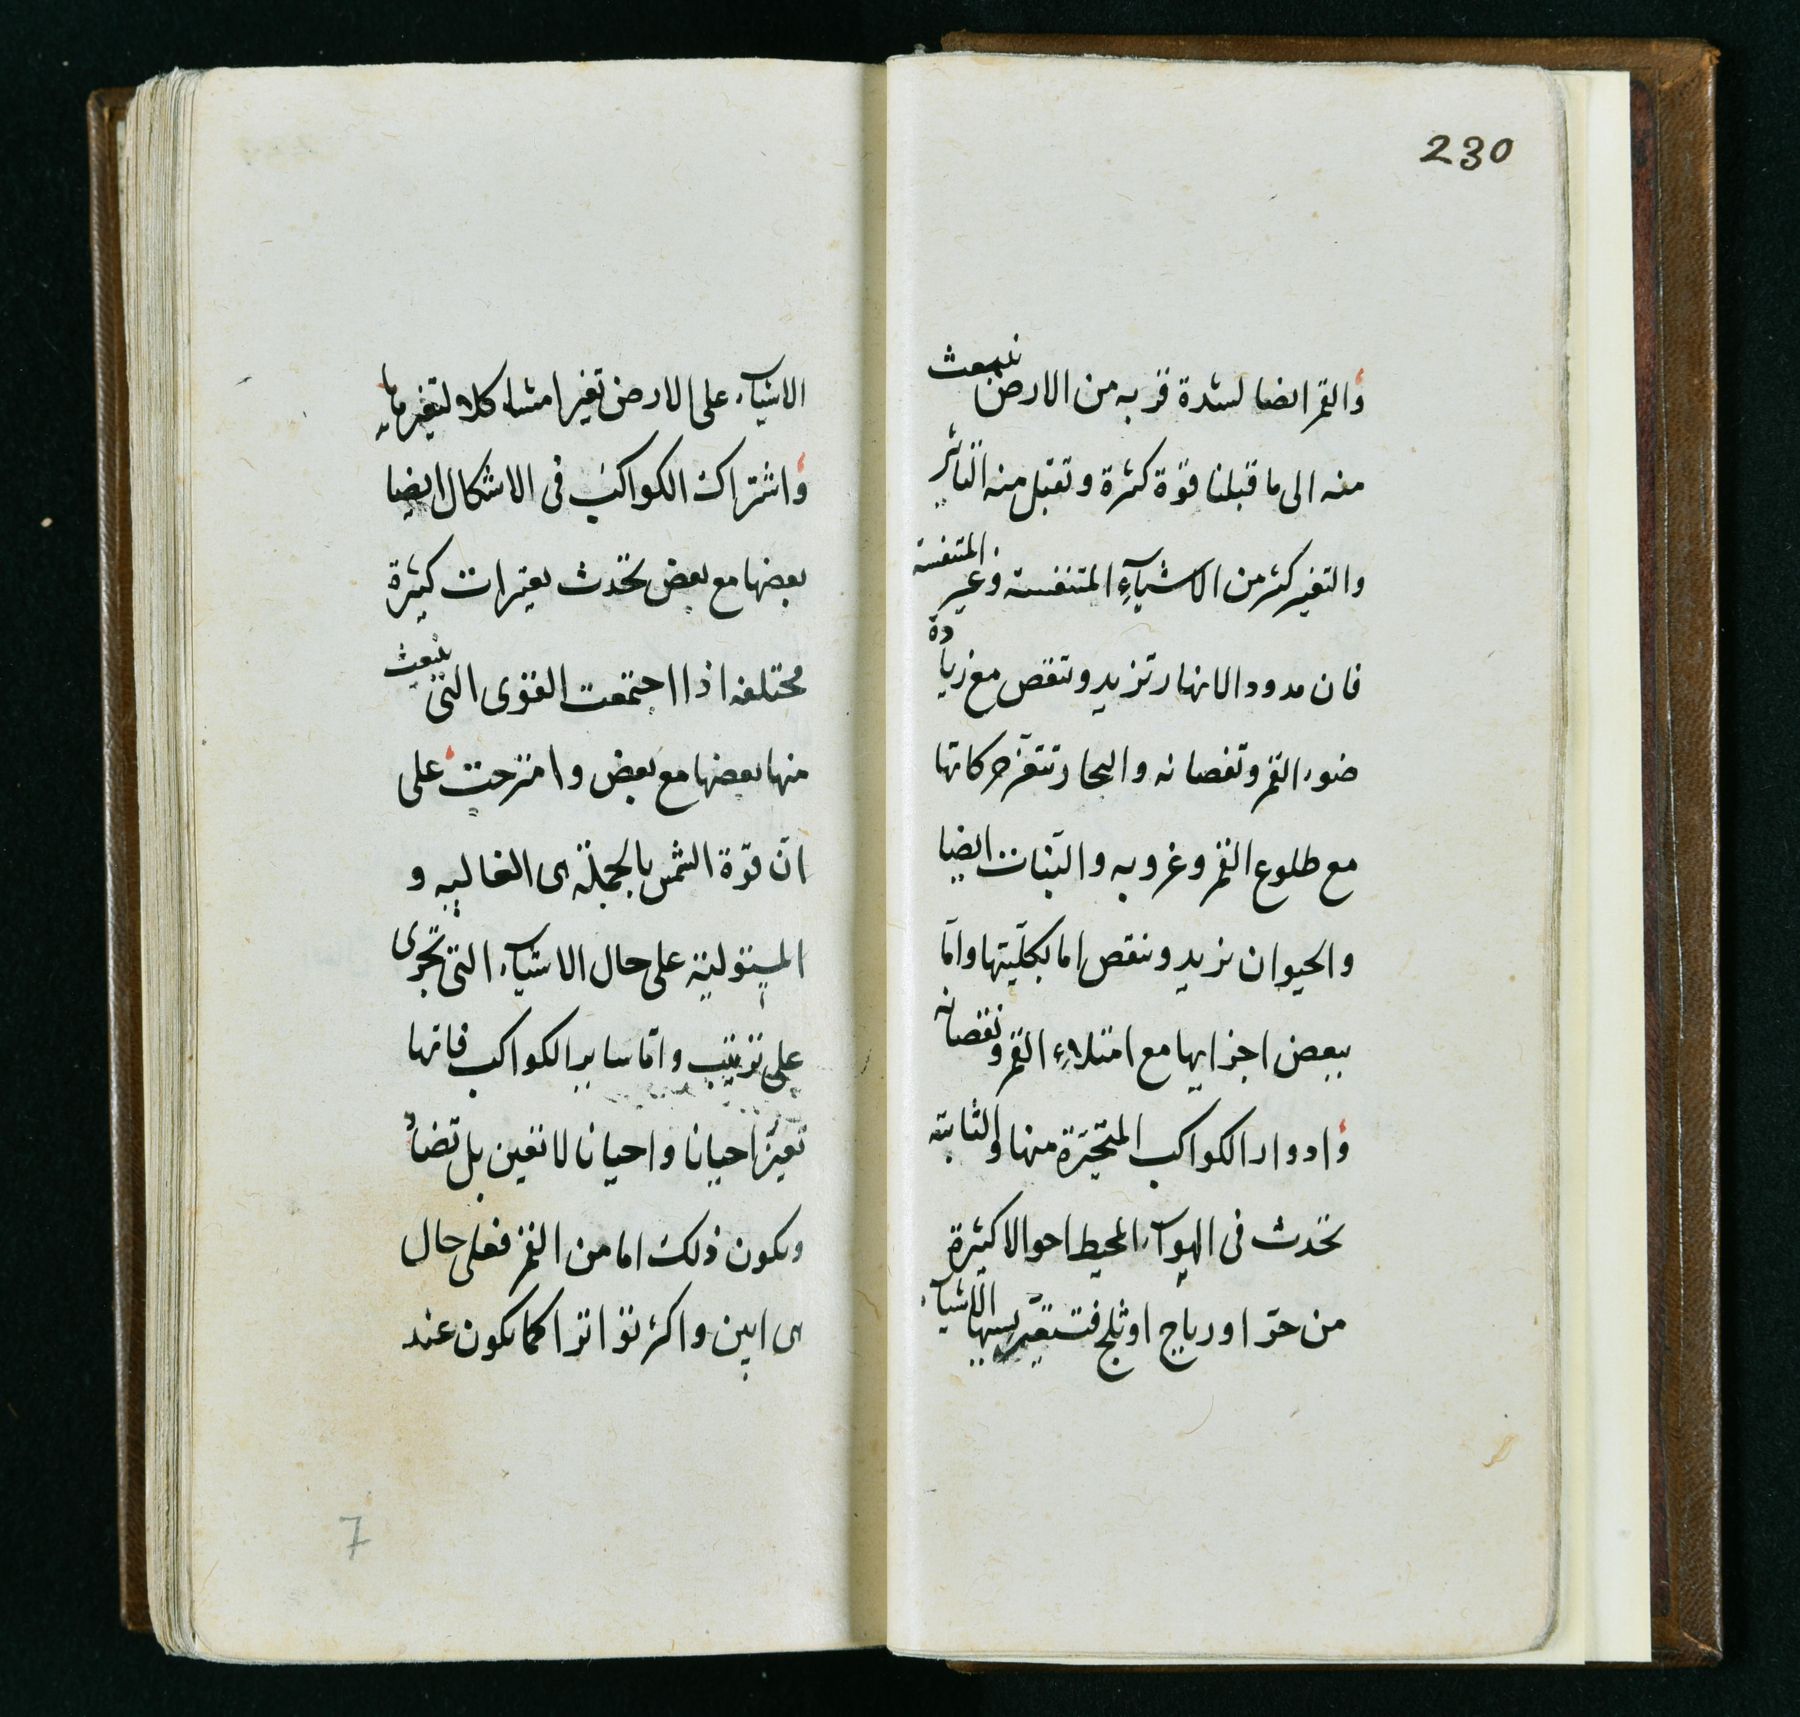 230
والقمر ايضا لشدة قربه من الارض ينبعث
منه الى ما قبلنا قوة كثرة وتقبل منه التاثير
والتغير كثير من الاشيآءِ المتنفسة وغير المتنفسة
فان مدود الانهار تزيد وتنقص مع زيادة
ضوء القمر ونقصانه والبحار تتغير حركاتها
مع طلوع القمر وغروبه والنبات ايضا
والحيوان يزيد وينقص اما بكلّيتها وامّا
ببعض اجزايها مع امتلاءِ القمر ونقصانه
وادوار الكواكب المتحيّرة منها والثابته
تحدث فى الهوآء المحيط احوالا كثيرة
من حرّ او رياح او ثلج فتتغيّر بسببها الاشيآء
الاشيآء على الارض تغيرا مشاكلا لتغيرها
واشتراك الكواكب فى الاشكال ايضا
بعضها مع بعض تحدث تغيرات كثيرة
مختلفه اذا اجتمعت القوى التى تنبعث
منها بعضها مع بعض وامتزجت على
انّ قوّة الشمس بالجملة هى الغالبه و
المستولية على حال الاشيآء التى تجرى
على ترتيب وامّا ساير الكواكب فانها
تعين احيانا واحيانا لا تعين بل تضادّ
ويكون ذلك اما من القمر فعلى حال
هى ابين واكثر تواترا كما يكون عند
7